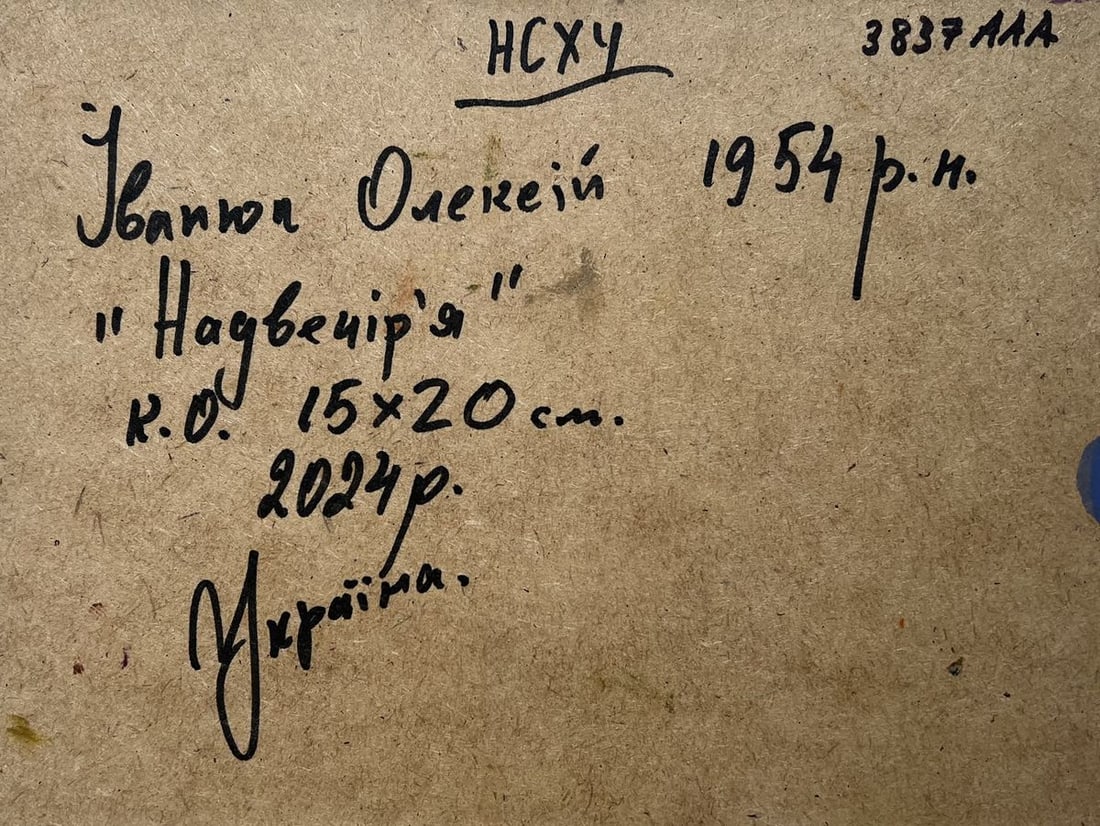 НСХУ 3837ААА
Іванюк Олексій 1954 р.н.
"Надвечір'я"
к.о. 15×20 см.
2024р.
Україна.